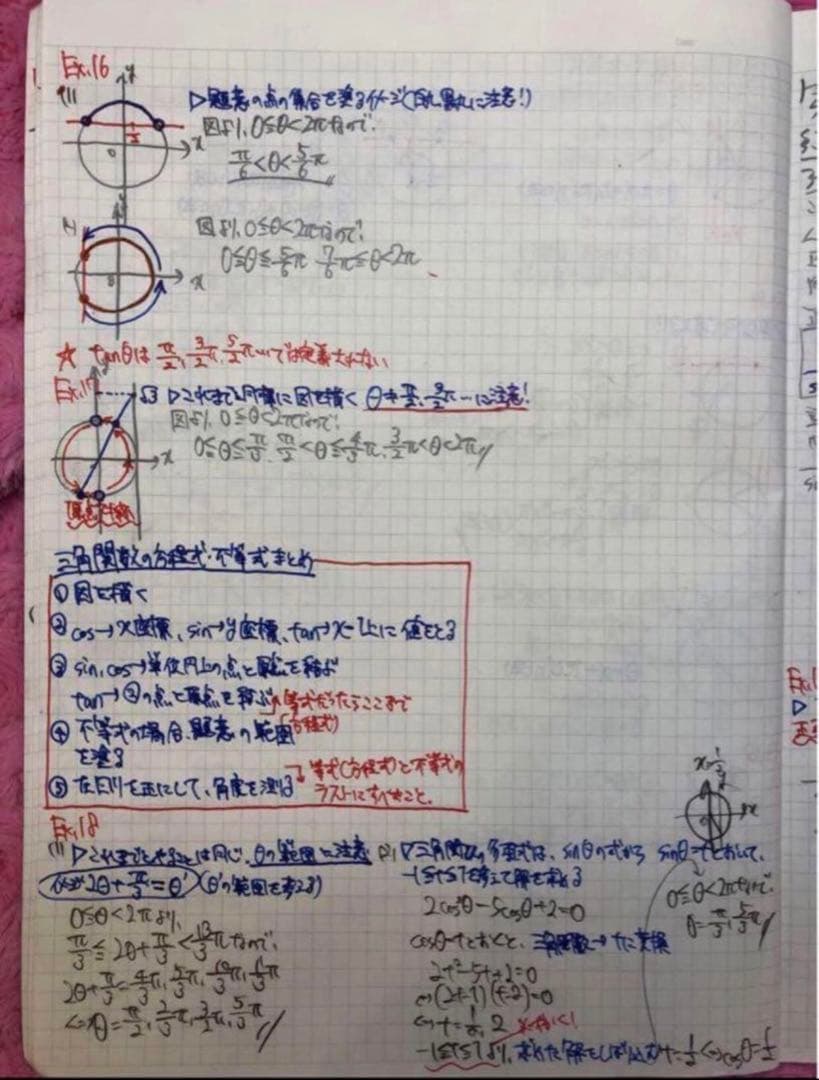 Ex.16
(1)
▷題意の点の集合を塗るイメージ(白丸、黒丸に注意!)
図より、0≦θ<2πなので、
π/6<θ<5/6π
y
x
0
1/2
図より、0≦θ<2πなので、
0≦θ≦5/6π 7/6π≦θ<2π
x
☆ tanθは π/2, 3/2π, 5/2π…では定義されない
Ex.17
√3 ▷これまでと同様に図を描く θ≠π/2, 3/2π…に注意!
図より、0≦θ<2πなので、
0≦θ≦π/3, π/2<θ≦4/3π, 3/2π<θ<2π
x
三角関数の方程式・不等式まとめ
①図を描く
②cos→x座標、sin→y座標、tan→x=1上に値をとる
③sin,cos→単位円上の点と原点を結ぶ
tan→②の点と原点を結ぶ 等式だったらここまで
(方程式)
④不等式の場合、題意の範囲
を塗る
⑤左回りを正にして、角度を測る
等式(方程式)と不等式の
ラストにすべきこと。
Ex.18
(1) ▷これまでとやることは同じ、θの範囲に注意
2θ+π/3=θ' (θ'の範囲を考える)
0≦θ<2πより、
π/3≦2θ+π/3<13/3πなので、
2θ+π/3=4/3π, 5/3π, 10/3π, 11/3π
⇔θ=π/2, 2/3π, 3/2π, 5/3π
(2) ▷三角関数の方程式は、sinθの式から sinθ=tとおいて、
-1≦t≦1を考えて解を求める
2cos²θ-5cosθ+2=0
cosθ=tとおくと、三角関数→tに変換
2t²-5t+2=0
⇔(2t-1)(t-2)=0
⇔t=1/2, 2
-1≦t≦1より、求めた解をしぼり込む t=1/2⇔cosθ=1/2
x=1/2
x
0≦θ<2πなので、
θ=π/3, 5/3π